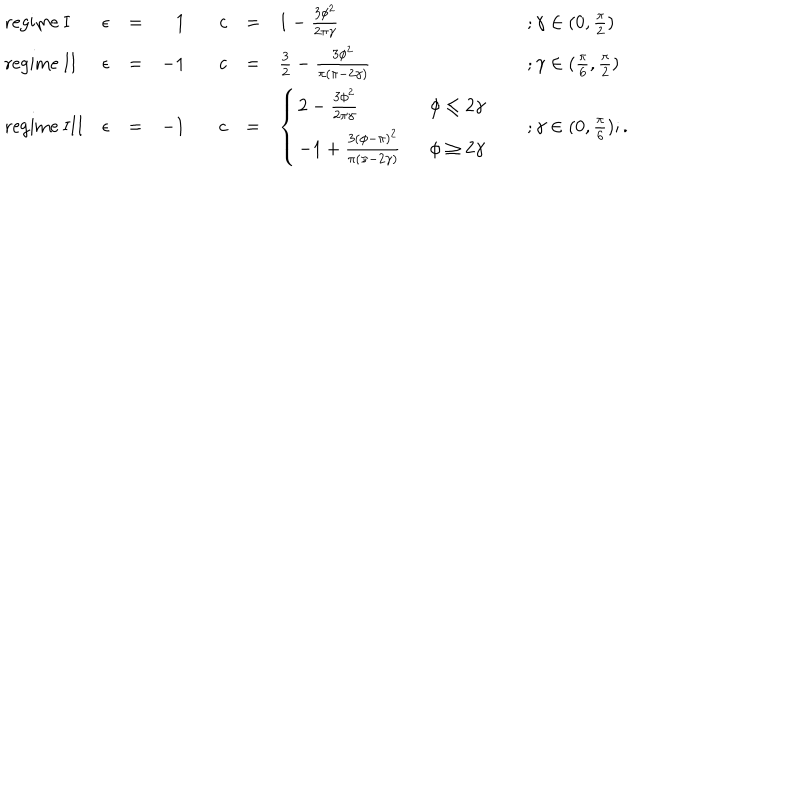 regime I ϵ = 1 c = 1 − \frac{3ϕ^2}{2πγ} ; γ ∈ (0, \frac{π}{2})
regime II ϵ = −1 c = \frac{3}{2} − \frac{3ϕ^2}{π(π−2γ)} ; γ ∈ (\frac{π}{6}, \frac{π}{2})
regime III ϵ = −1 c = { 2 − \frac{3ϕ^2}{2πγ} ϕ ≤ 2γ
−1 + \frac{3(ϕ−π)^2}{π(π−2γ)} ϕ ≥ 2γ ; γ ∈ (0, \frac{π}{6}); .